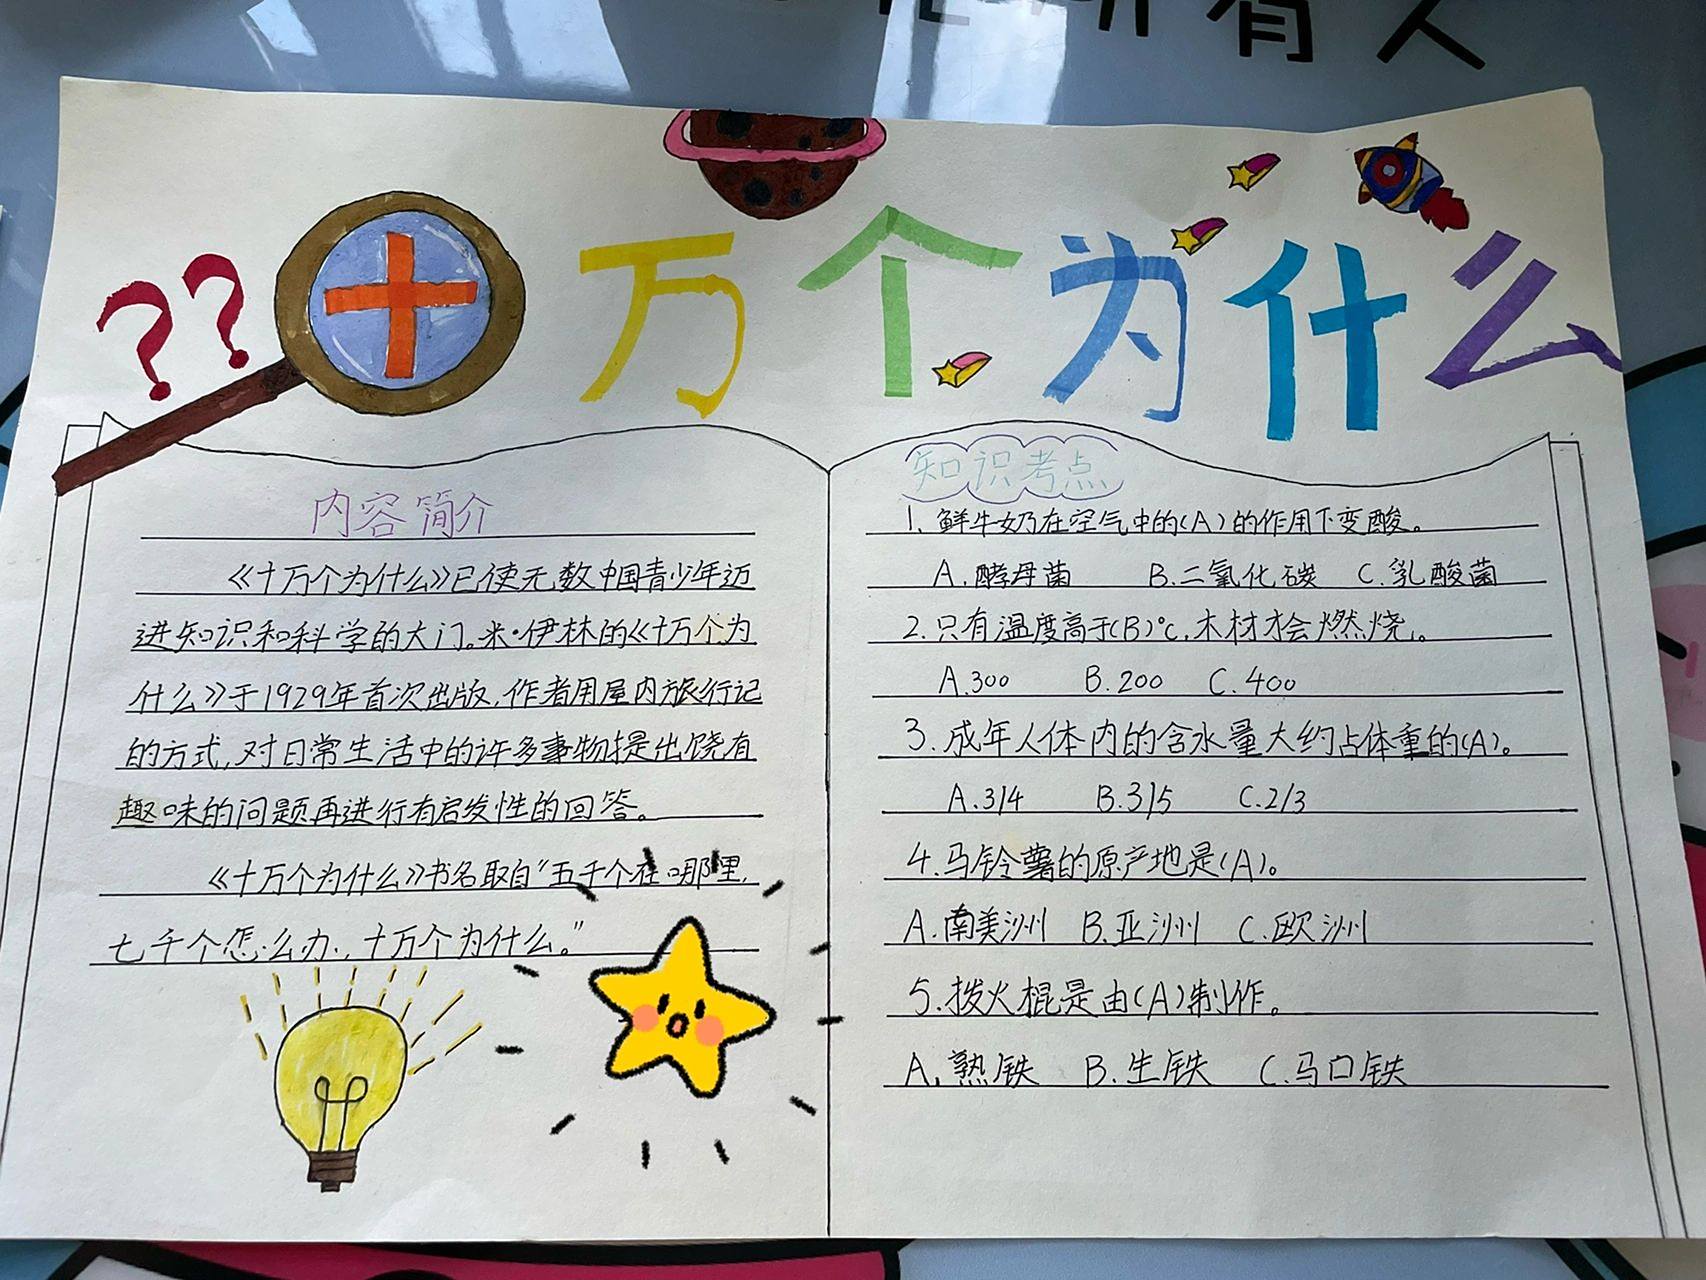 所有人
??十万个为什么
内容简介
《十万个为什么》已使无数中国青少年迈
进知识和科学的大门。米·伊林的《十万个为
什么》于1929年首次出版,作者用屋内旅行记
的方式,对日常生活中的许多事物提出饶有
趣味的问题再进行有启发性的回答。
《十万个为什么》书名取自"五千个在哪里,
七千个怎么办,十万个为什么。"
知识考点
1、鲜牛奶在空气中的(A)的作用下变酸。
A.酵母菌 B.二氧化碳 C.乳酸菌
2.只有温度高于(B)℃,木材才会燃烧。
A.300 B.200 C.400
3.成年人体内的含水量大约占体重的(A)。
A.3/4 B.3/5 C.2/3
4.马铃薯的原产地是(A)。
A.南美洲 B.亚洲 C.欧洲
5.拨火棍是由(A)制作。
A.熟铁 B.生铁 C.马口铁